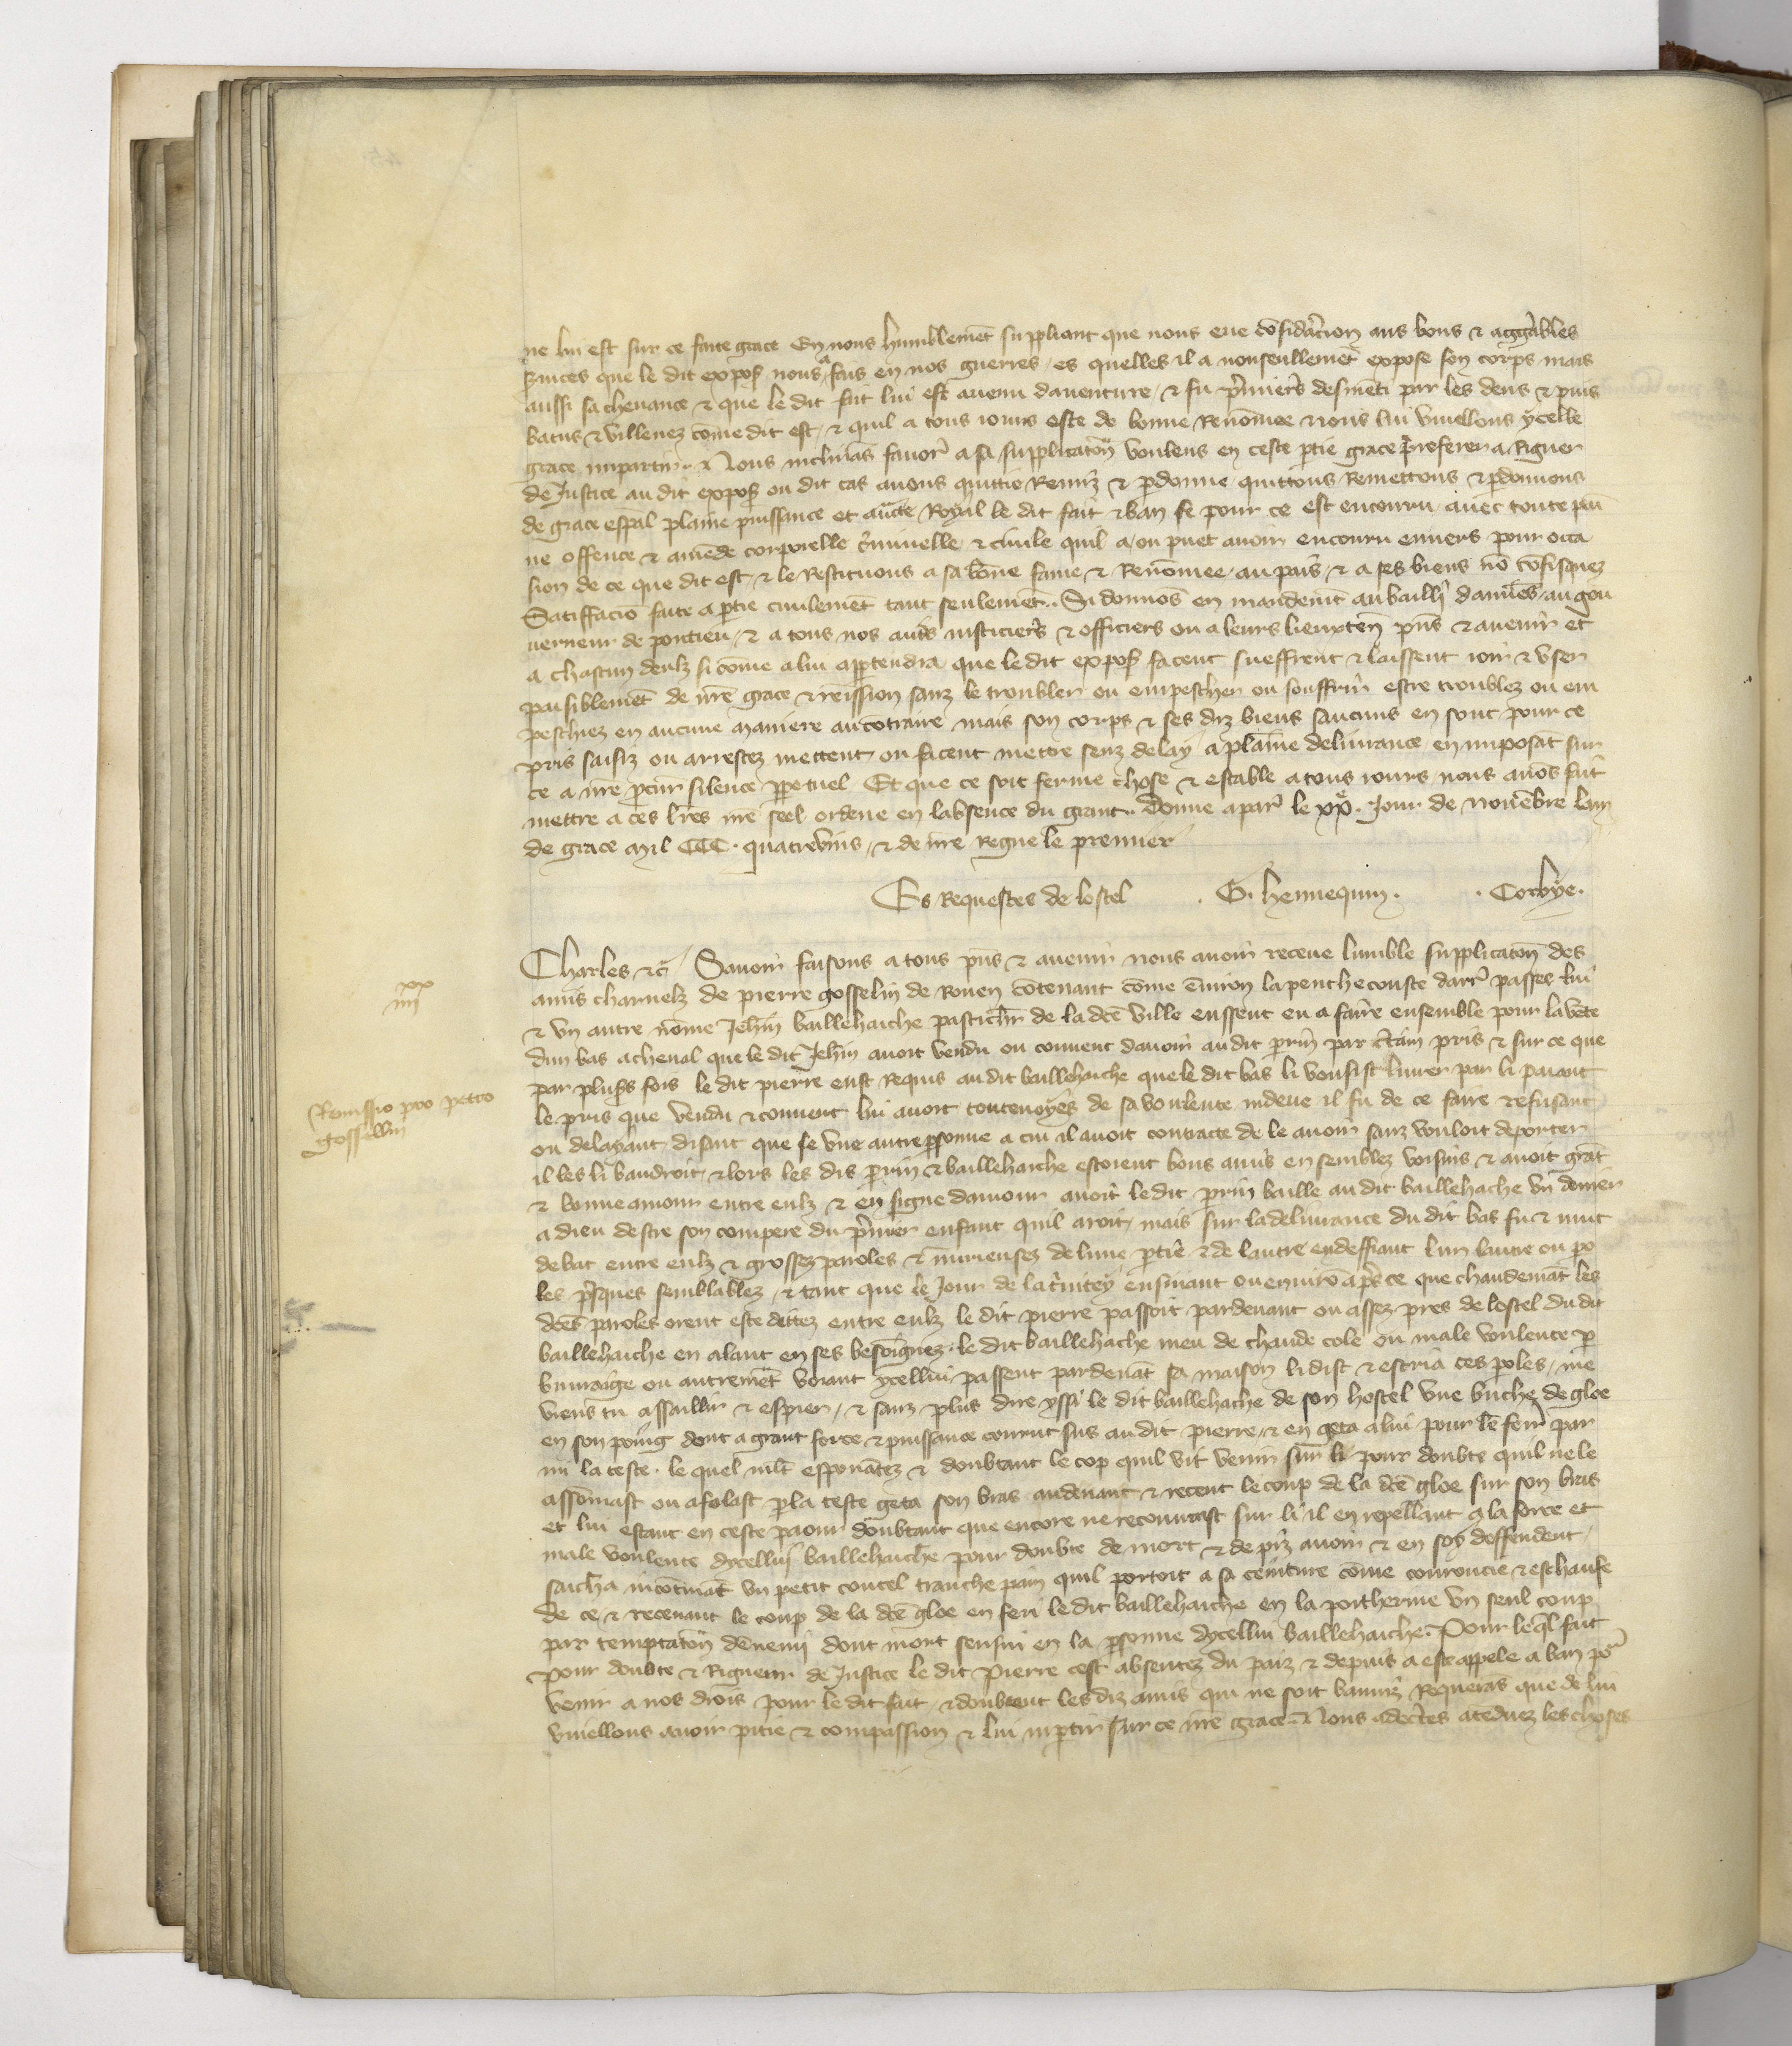 ne lui est sur ce faite grace En nous humblemēt suppliant que nous eue cōsidāciōn aus bons & aggābles
sūices que le dit expoſ nous a fais en nos guerres / es quelles il a nonseullemēt expose son corps mais
aussi sa chevance & que le dit fait lui est avenu daventure / & fu p̄miers desmēti par les dens & puis
batus & villenez cōme dit est / & quil a tous iours este de bonne renōmee & nous lui vueillons ycelle
grace impartir / Nous inclinās favor̄ a sa supplicatōn voulens en ceste p̄tie grace preferer a Riguer
de Justice au dit expoſ ou dit cas avons quittie Remiz & p̄donne quittons Remettons & p̄donnons
de grace esp̄al plaine puissance et auct̄e Royal le dit fait & ban se pour ce est encouru avec toute pai
ne offence & amēde corporelle c̄iminelle & civile quil a / ou puet avoir encouru envers pour occa
sion de ce que dit est / & le Restituons a sa bōne fame & Renōmee / au pais / & a ses biens nō cōfisquez
Satiffaciō faite a p̄tie civilemēt tant seulemēt .. Si donnōs en mandemēt au bailli damiēs / au gou
verneur de pontieu / & a tous nos aut̄s iusticiers & officiers ou a leurs lieuxten̄ p̄ns & avenir et
a chascun deulz si cōme a lui app̄tendra que le dit expoſ facent sueffrent & laissent ioir & user
paisiblemēt de n̄re grace & rēission sanz le troubler ou empescher ou souffrir estre troublez ou em
peschiez en aucune maniere au cōtraire mais son corps & ses diz biens saucuns en sont pour ce
pris saisiz ou arrestez mettent ou facent mettre senz delay a plaine delivrance / en imposāt sur
ce a n̄re p̄cur̄ silence p̄petuel Et que ce soit ferme chose & estable a tous iours nous avōs fait
mettre a ces l̄res n̄re seel ordene en labsence du grant .. Donne a par̄ le xxe. Jour de novēbre lan
de grace mil CCC. quatrevins / & de n̄re Regne le premier
Es Requestes de lostel . G. hennequin . . Corbye .
Charles &c̄ / Savoir faisons a tous p̄ns & avenir nous avoir receue lumble supplicatōn des
amis charnelz de pierre gosselin de Rouen cōtenant cōme ēviron la penthecouste darr̄ passee lui
& un autre nōme Jeh̄in baillehaiche pastich̄r de la dc̄e ville eussent eu a faire ensemble pour la vēte
dun bas a cheval que le dit Jeh̄in avoit vendu ou convent davoir au dit p̄rin par c̄tain pris & sur ce que
par pluſ̄s fois le dit pierre eust Requis au dit baillehaiche que le dit bas li vousist livrer par li paiant
le pris que vendu & convent lui avoit toutevoyes de sa voulente indeue il fu de ce faire refusant
ou delayant disant que se une autre p̄sonne a cui il avoit contracte de le avoir sanz vouloit deporter
il les li baudroit / & lors les dis p̄rin & baillehaiche estoient bons amis en semblez voisins & avoit grāt
& bonne amour entre eulz & en signe damour avoit le dit p̄rin baille au dit baillehache un denier
a dieu destre son compere du p̄mier enfant quil aroit / mais sur la delivrance du dit bas fu & mut
debat entre eulz & grossez paroles & iniurieusez de lune p̄tie & de lautre en deffiant lun lautre ou po
les p̄sques semblablez / & tant que le Jour de la t̄initey ensuiant ou enuirō ap̄s ce que chaudemāt les
dc̄es paroles orent este dittez entre eulz le dit pierre passoit pardevant ou assez pres de lostel du dit
baillehaiche en alant en ses besoingnez . le dit baillehache meu de chaude cole ou male voulente p̄
buuraige ou autremēt voiant ycellui passent pardevāt sa maison li dist & escria ces p̄oles / me
viens tu assaillir & espier / & sanz plus dire yssi le dit baillehache de son hostel une buche de gloe
en son poing dont a grant force & puissance courut sus au dit pierre / & en geta a lui pour le ferir par
mi la teste . le quel mlt̄ espouātez & doubtant le cop quil vit venir sur li pour doubte quil ne le
assōmast ou afolast p̄ la teste geta son bras au devant & receut le coup de la dc̄e gloe sur son bras
et lui estant en ceste paour doubtant que encore ne recouvrast sur li il en repellant a la force et
male voulente dycellui baillehaiche pour doubte de mort & de piz avoir & en soy deffendent /
saicha incōtināt un petit coutel tranche pain quil portoit a sa ceinture cōme courroucie & eschaufe
de ce / & recevant le coup de la dc̄e gloe en feri le dit baillehaiche en la poitherine un seul coup
par temptatōn dēnemi dont mort sensui en la p̄sonne dycellui baillehaiche . Pour leq̄l fait
pour doubte & Rigueur de Justice le dit Pierre cest absentez du paiz & depuis a este appele a ban po^r
venir a nos drois pour le dit fait / & doubtent les diz amis qui ne soit banniz Requerās que de lui
vueillons avoir pitie & compassion & lui imp̄tir sur ce n̄re grace . Nous adec̄tes atēduez les choses
xx
iiii
Remissio pro petro
gossellin